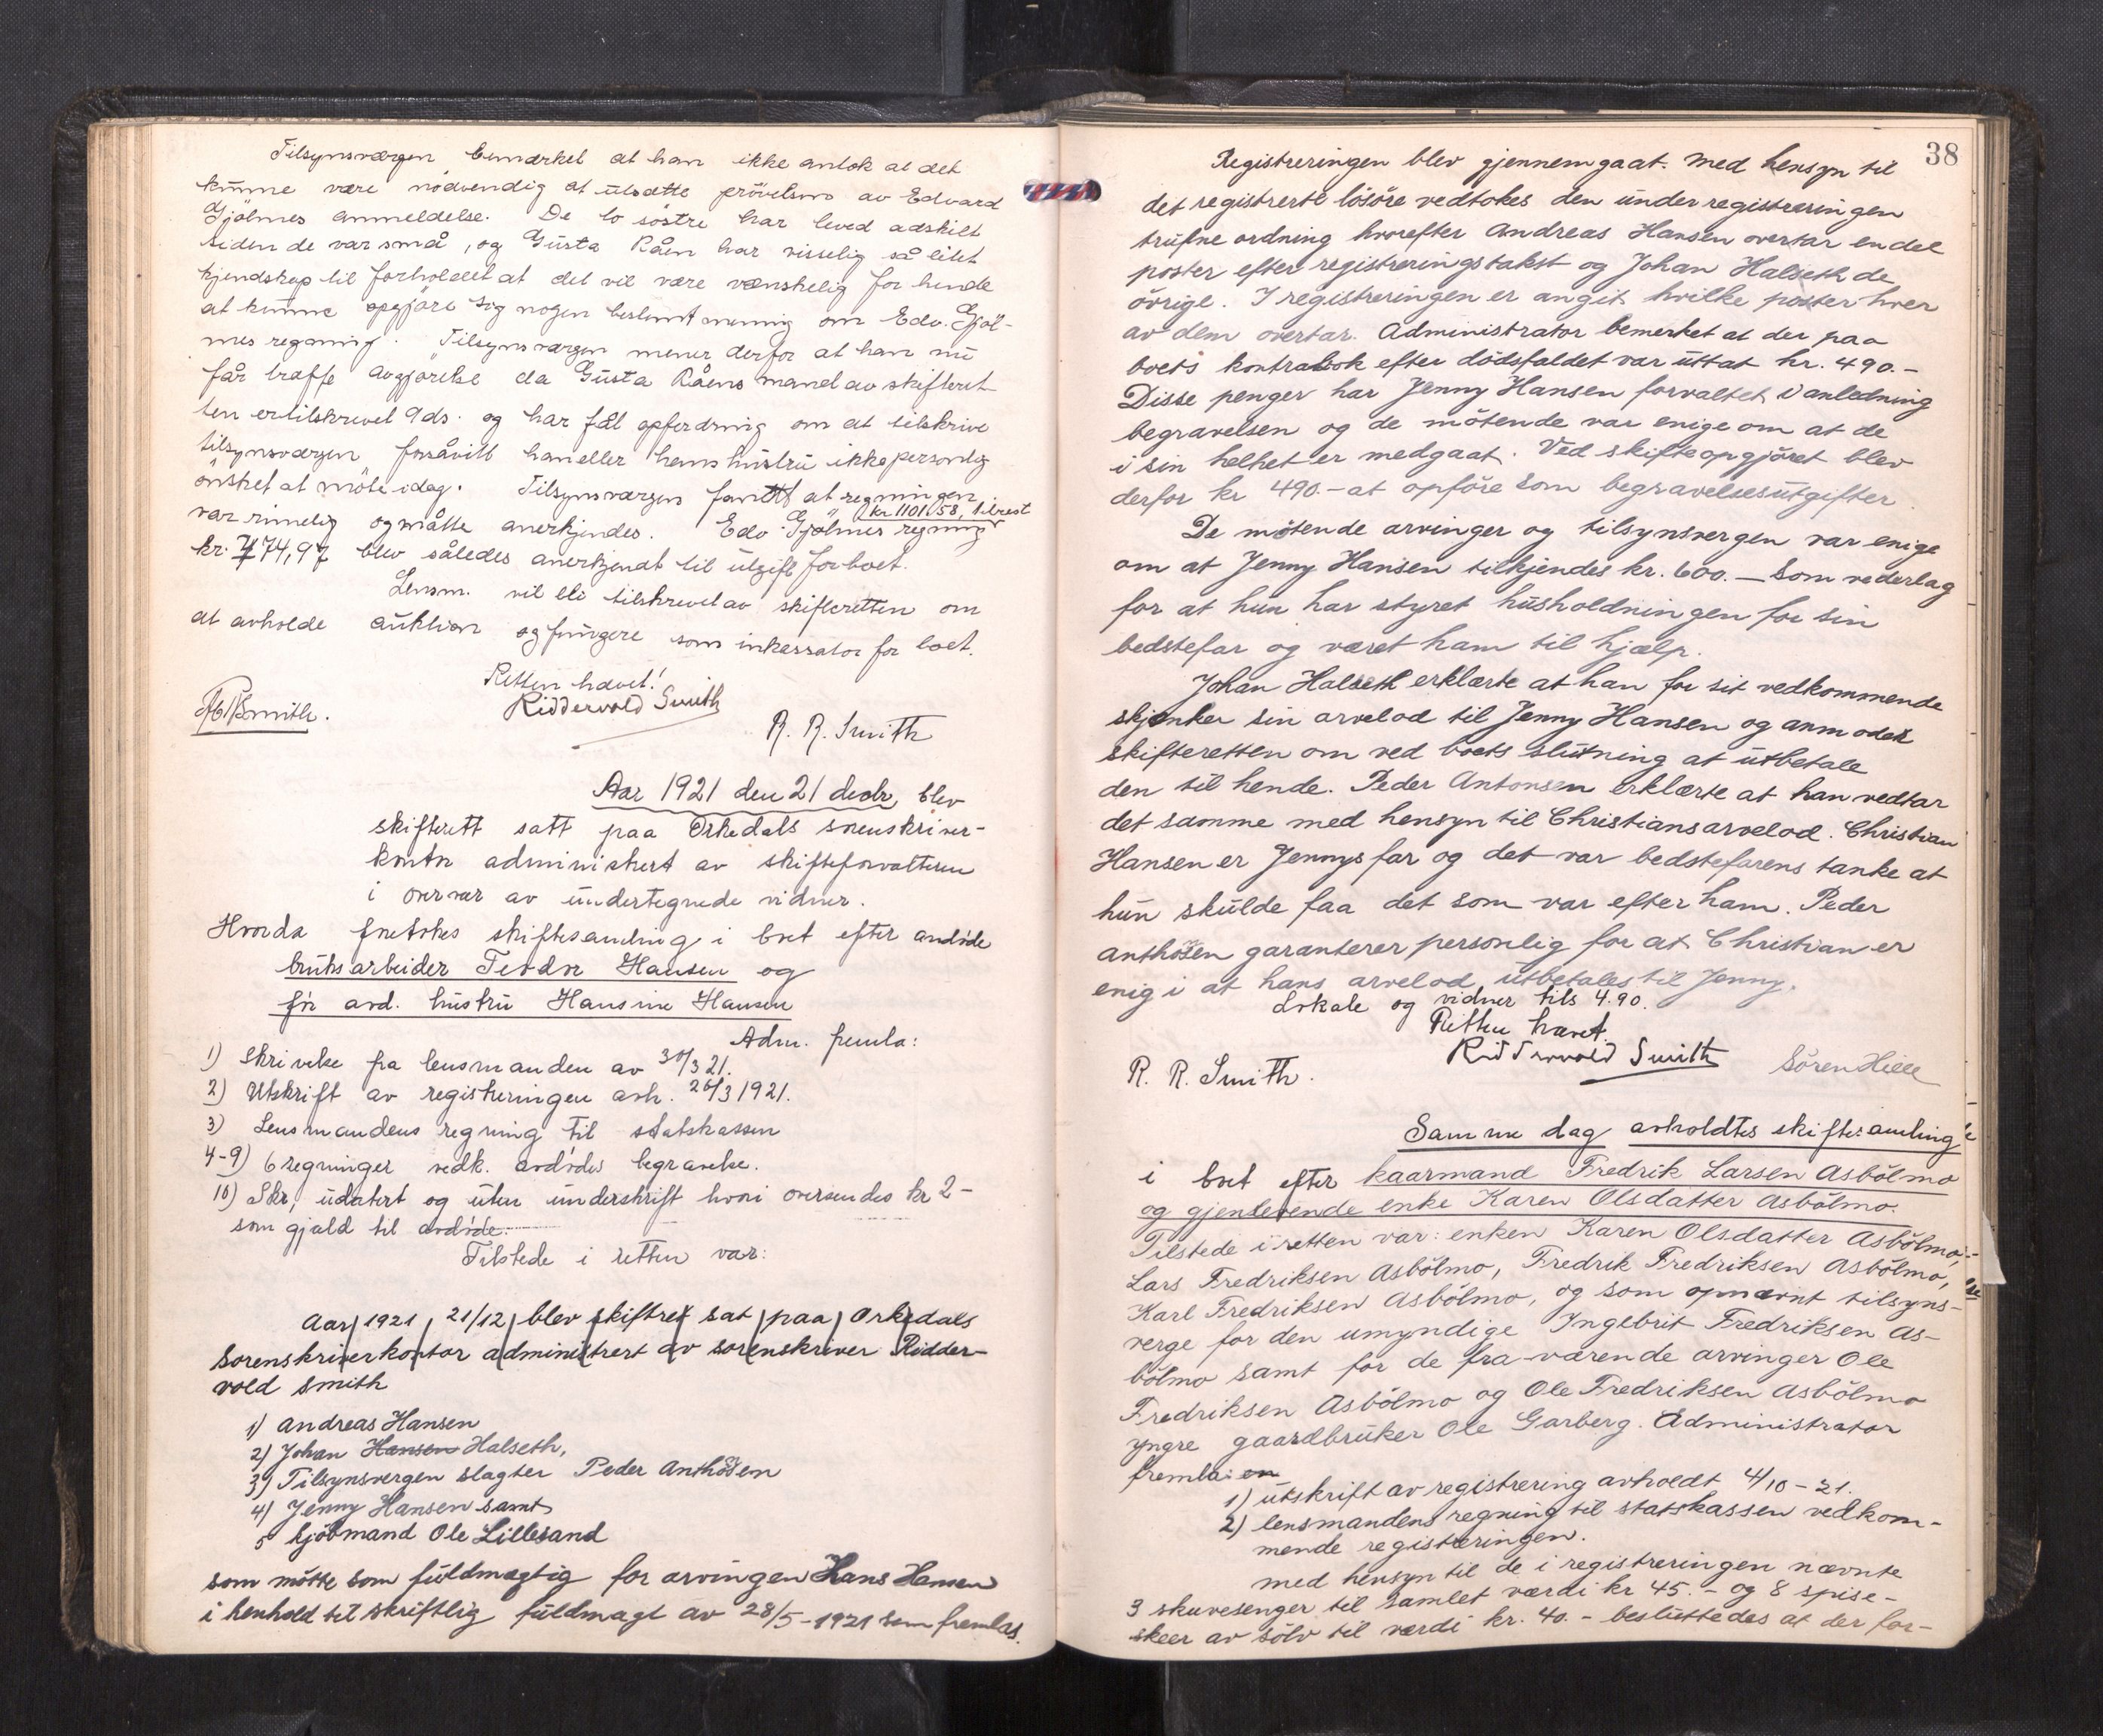 Tilsynsværgen bemærket at han ikke antok at det
kunne være nödvendig at utsætte prövelsen av Edvard
Gjölmes anmeldelse. De to söstre har leved adskilt
siden de var små, og Gusta Råen har visselig så litet
kjendskap til forholdet at det vil være vanskelig for hende
at kunne opgjöre sig nogen bestemt mening om Edv. Gjöl-
mes regning. Tilsynsværgen mener derfor at han nu
får træffe avgjörelse da Gusta Råens mand av skifteret-
ten er tilskrevet 9ds. og har fåt opfordring om at tilskrive
tilsynsværgen forsåvitt han eller hans hustru ikke personlig
önsket at möte idag. Tilsynsværgen fandt at regningen
var rimelig og måtte anerkjendes. Edv. Gjölmes regning kr 1101.58, tilrest
kr. 774,97 blev således anerkjendt til utgift for boet.
Lensm. vil bli tilskrevet av skifteretten om
at avholde auktion og fungere som inkassator for boet.
Retten hævet!
Riddervold Smith
Smith.
R. R. Smith
Aar 1921 den 21 decbr. blev
skifterett satt paa Orkedals sorenskriver-
kontor administrert av skifteforvalteren
i overvær av undertegnede vidner.
Hvorda foretokes skiftesamling i boet efter avdöde
bruksarbeider Teodor Hansen og
för avd. hustru Hansine Hansen
Adm. fremla:
1) Skrivelse fra lensmanden av 30/3 21.
2) Utskrift av registreringen avh. 26/3 1921.
3) Lensmandens regning til statskassen
4-9) 6 regninger vedk. avdödes begravelse.
10) Skr, udatert og uten underskrift hvori oversendes kr 2-
som gjæld til avdöde.
Tilstede i retten var:
Aar 1921, 21/12 blev skifteret sat paa Orkedals
Sorenskriverkontor administrert av sorenskriver Ridder-
vold Smith
1) Andreas Hansen
2) Johan Hansen Halseth,
3) Tilsynsvergen slagter Peder Anthonsen
4) Jenny Hansen samt
5 kjöbmand Ole Lillesand
som mötte som fuldmægtig for arvingen Hans Hansen
i henhold til skriftlig fuldmagt av 28/5-1921 som fremlas.
38
Registreringen blev gjennemgaat. Med hensyn til
det registrerte lösöre vedtokes den under registreringen
trufne ordning hvorefter Andreas Hansen overtar endel
poster efter registreringstakst og Johan Halseth de
övrige. I registreringen er angit hvilke poster hver
av dem overtar. Administrator bemerket at der paa
boets kontrabok efter dödsfaldet var uttat kr. 490.-
Disse penger har Jenny Hansen forvaltet i anledning
begravelsen og de mötende var enige om at de
i sin helhet er medgaat. Ved skifteopgjöret blev
derfor kr 490.- at opföre som begravelsesutgifter.
De mötende arvinger og tilsynsvergen var enige
om at Jenny Hansen tilkjendes kr. 600.- som vederlag
for at hun har styret husholdningen for sin
bedstefar og været ham til hjælp.
Johan Halseth erklærte at han for sit vedkommende
skjænker sin arvelod til Jenny Hansen og anmodet
skifteretten om ved boets slutning at utbetale
den til hende. Peder Antonsen erklærte at han vedtar
det samme med hensyn til Christians arvelod. Christian
Hansen er Jennys far og det var bedstefarens tanke at
hun skulde faa det som var efter ham. Peder
Anthonsen garanterer personlig for at Christian er
enig i at hans arvelod utbetales til Jenny.
Lokale og vidner tils 4.90.
Retten hævet.
Riddervold Smith
R. R. Smith.
Sören Hille
Samme dag avholdtes skiftesamling
i boet efter kaarmand Fredrik Larsen Asbölmo
og gjenlevende enke Karen Olsdatter Asbölmo.
Tilstede i retten var: enken Karen Olsdatter Asbölmo,
Lars Fredriksen Asbölmo, Fredrik Fredriksen Asbölmo,
Karl Fredriksen Asbölmo, og som opnævnt tilsyns-
verge for den umyndige Ingebrit Fredriksen As-
bölmo samt for de fraværende arvinger Ole
Fredriksen Asbölmo og Ole Fredriksen Asbölmo
yngre gaardbruker Ole Garberg. Administrator
fremla: en
1) utskrift av registrering avholdt 4/10-21.
2) lensmandens regning til statskassen vedkom-
mende registreringen.
med hensyn til de i registreringen nævnte
3 skuvesenger til samlet værdi kr 45.- og 8 spise-
skeer av sölv til værdi kr. 40.- besluttedes at der for-